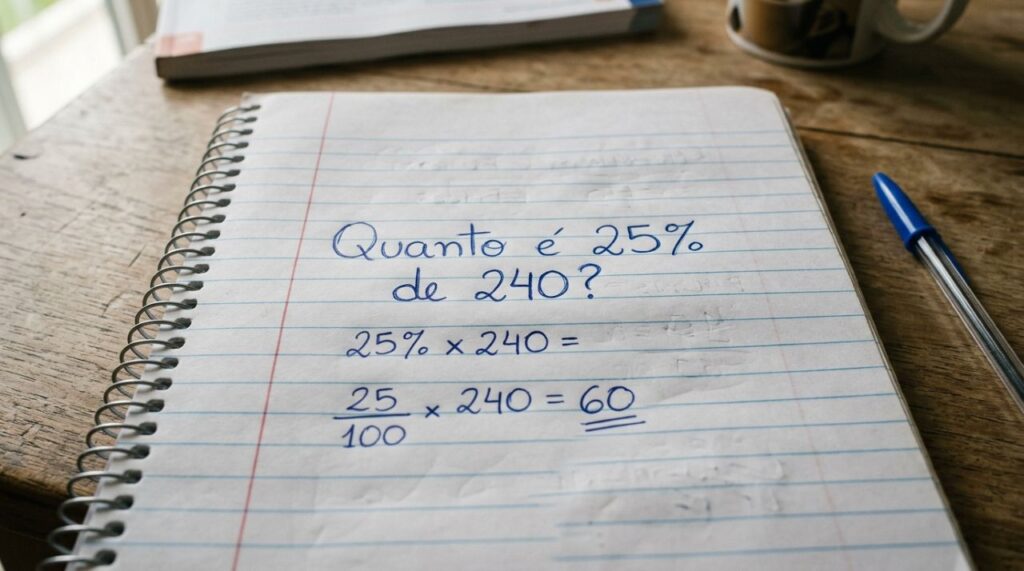 Quanto é 25%
de 240?
25% x 240 =
25/100 x 240 = 60